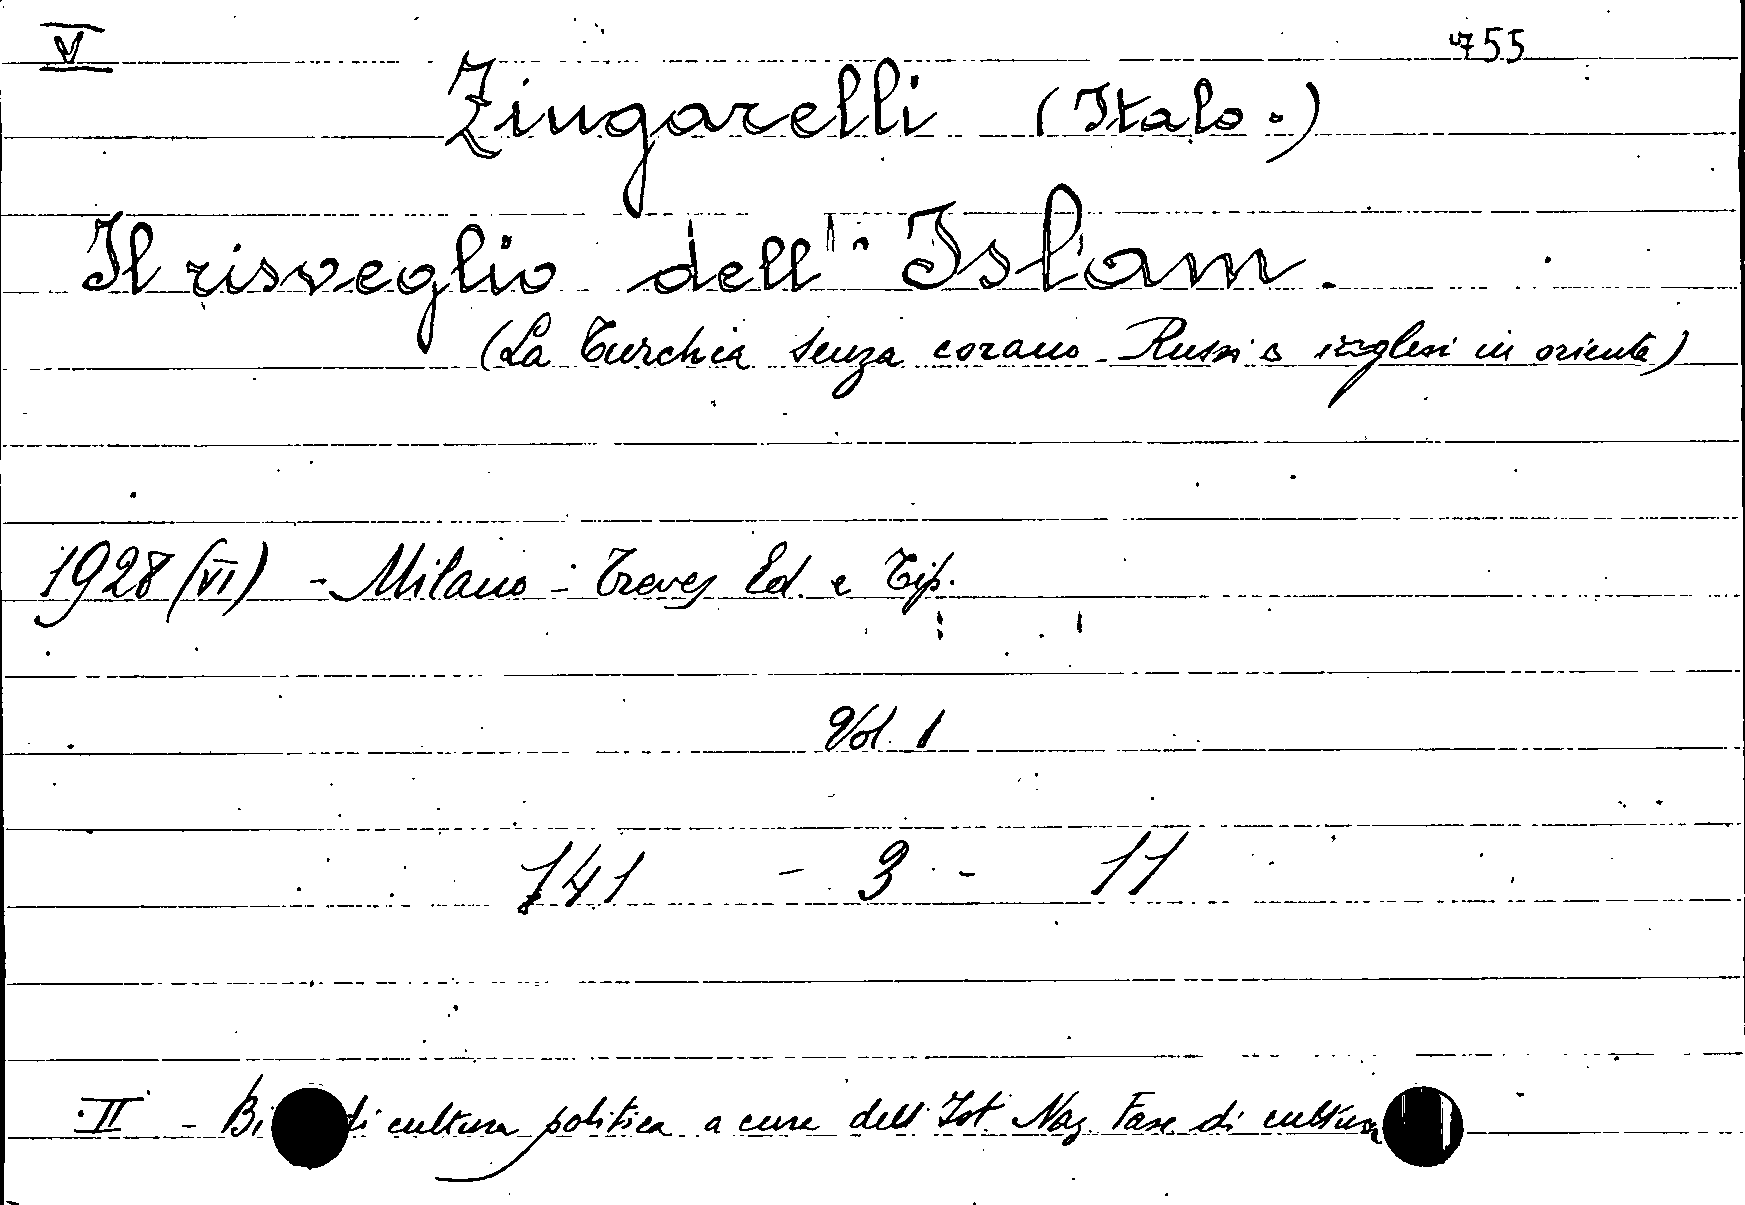 V 755
Zingarelli (Italo.)
Il risveglio dell' Islam.
(La Turchia senza corano - Russi e inglesi in oriente)
1928 (VI) - Milano - Treves Ed. e Tip.
Vol 1
141 - 3 - 11
II - Bi di cultura politica a cura dell' Ist. Naz. Fasc di cultura